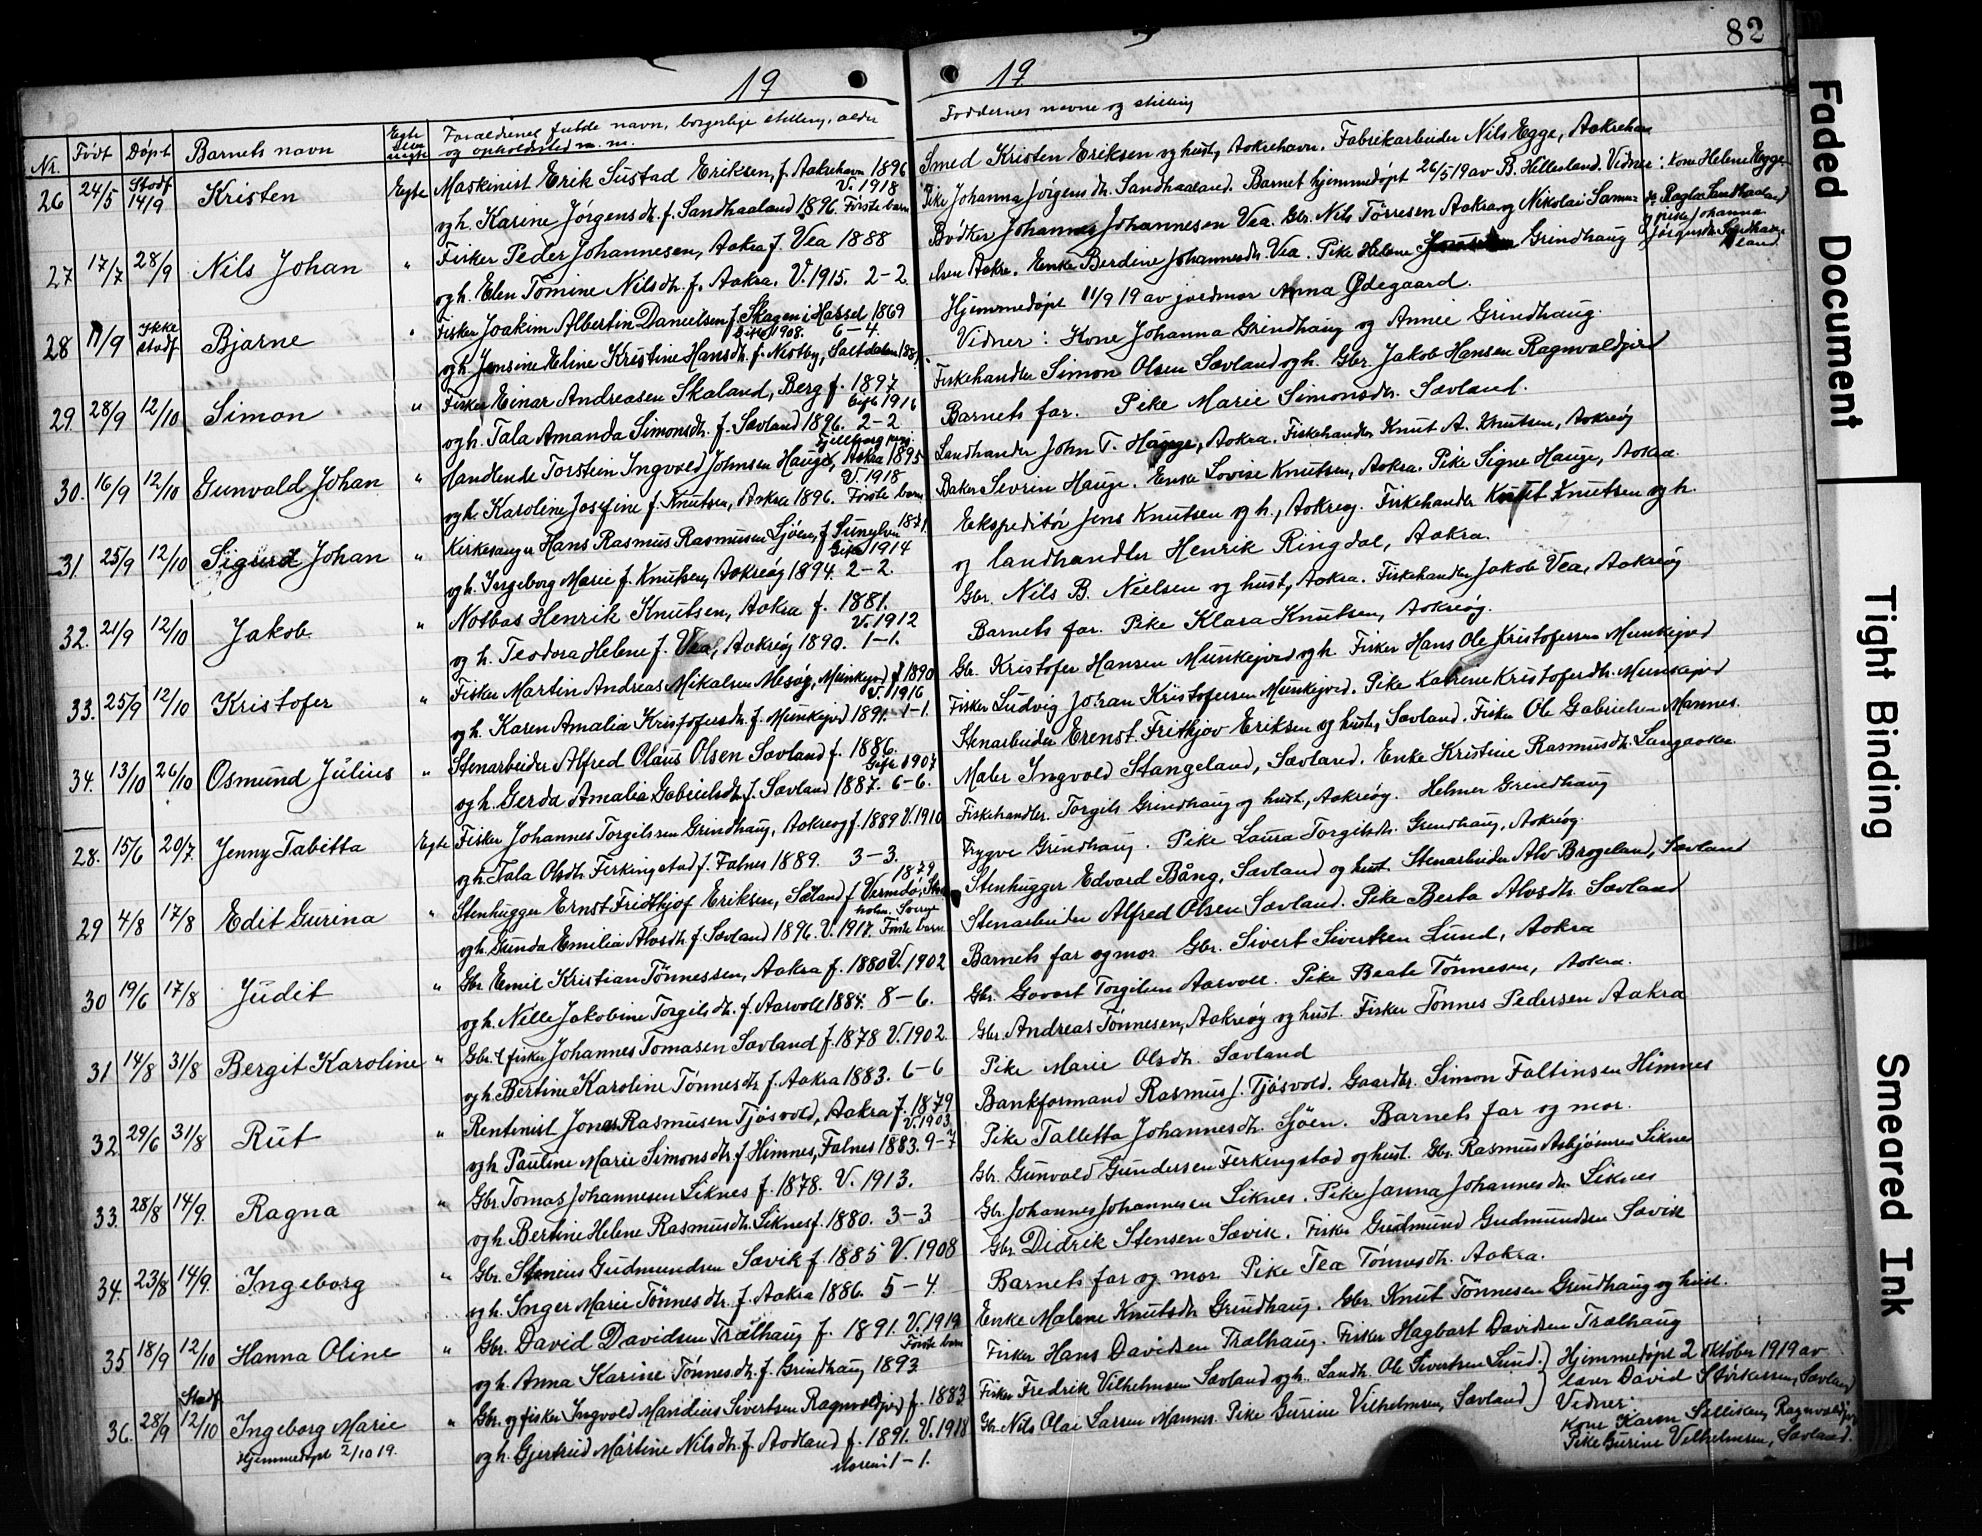 82
19
19
Nr. Født Døpt Barnets navn Egte uegte Forældrenes fulde navn, borgerlige stilling, alder
og opholdssted m. m.
Faddernes navne og stilling
26 24/5 Stadf 14/9 Kristen Egte Maskinist Erik Sustad Eriksen, f. Aakrehavn 1896
V. 1918
og h. Karine Jørgensdtr. f. Sandhaaland 1896. Første barn
Smed Kristen Eriksen og hust, Aakrehavn. Fabrikarbeider Nils Egge, Aakrehavn
Pike Johanna Jørgensdtr. Sandhaaland. Barnet hjemmedøpt 26/5 19 av B. Hillesland. Vidner: Kone Helene Egge
27 17/7 28/9 Nils Johan " Fisker Peder Johannesen, Aakra f. Vea 1888
og h. Elen Tomine Nilsdtr. f. Aakra. V. 1915. 2-2.
Bødker Johannes Johannesen Vea. Gbr. Nils Tørresen Aakra og Nikolai Samu-
elsen Aakre. Enke Berdine Johannesdtr. Vea. Pike Helene Grindhaug
og pike Johanna
Jørgensdtr. Sandhaa-
land.
28 11/9 Ikke stadf Bjarne " Fisker Joakim Albertin Danielsen f. Skagen i Hassel 1869
Gift 1908. 6-4.
og h. Jensine Eline Kristine Hansdtr. f. Nestby, Saltdalen 188
Hjemmedøpt 11/9 19 av jordmor Anna Ødegaard.
Vidner: Kone Johanna Grindhaug og Annie Grindhaug.
29. 28/9 12/10 Simon " Fisker Einar Andreasen Skaland, Berg f. 1897
Gift 1916
og h. Tala Amanda Simonsdtr. f. Sævland 1896. 2-2
Fiskehandler Simon Olsen Sævland og h. Gbr. Jakob Hansen Ragnvaldjord
Barnets far. Pike Marie Simonsdtr. Sævland.
30. 16/9 12/10 Gunvald Johan " Handlende Torstein Ingvald Johnsen Hauge, Aakra 1895
V. 1918
og h. Karoline Josefine f. Knutsen, Aakra 1896. Første barn
Landhandler John T. Hauge, Aakra. Fiskehandler Knut A. Knutsen, Aakreøy
Baker Sevrin Hauge. Enke Lovise Knutsen, Aakra. Pike Signe Hauge, Aakra.
31. 25/9 12/10 Sigurd Johan " Kirkesanger Hans Rasmus Rasmussen Ljøen, f. Sunelven 1871.
Gift 1914
og h. Ingeborg Marie f. Knutsen, Aakreøy 1894. 2-2.
Ekspeditør Jens Knutsen og h., Aakreøy. Fiskehandler Knut Knutsen og h.
og landhandler Henrik Ringdal, Aakra.
32. 21/9 12/10 Jakob " Notbas Henrik Knutsen, Aakra f. 1881.
V. 1912
og h. Teodora Helene f. Vea, Aakreøy 1890. 1-1.
Gbr. Nils B. Nielsen og hust, Aakra. Fiskehandler Jakob Vea, Aakreøy
Barnets far. Pike Klara Knutsen, Aakreøy.
33. 25/9 12/10 Kristofer " Fisker Martin Andreas Mikalsen Mesøy, Munkejord f. 1890
V. 1916
og h. Karen Amalia Kristofersdtr. f. Munkejord 1891. 1-1.
Gbr. Kristofer Hansen Munkejord og h. Fisker Hans Ole Kristofersen Munkejord
Fisker Ludvig Johan Kristofersen Munkejord. Pike Katrine Kristofersdtr. Munkejord
34. 13/10 26/10 Osmund Julius " Stenarbeider Alfred Olaus Olsen Sævland f. 1886.
Gift 1907
og h. Gerda Amalia Gabrielsdtr. f. Sævland 1887. 6-6.
Stenarbeider Erenst Fritkjov Eriksen og hust, Sævland. Fisker Ole Gabrielsen Mannes.
Maler Ingvald Stangeland, Sævland. Enke Kristine Rasmusdtr. Langaaker
28. 15/6 20/7 Jenny Tabitta Egte Fisker Johannes Torgilssen Grindhaug, Aakreøy f. 1889 V. 1910
og h. Tala Olsdtr. Ferkingstad f. Falnes 1889. 3-3.
Fiskehandler Torgils Grindhaug og hust, Aakreøy. Helmer Grindhaug
Trygve Grindhaug. Pike Laura Torgilsdtr. Grindhaug, Aakreøy.
29 4/8 17/8 Edit Gurina " Stenhugger Ernst Fridtkjof Eriksen, Sæland f. Vermdø, Stock-
1879
holm. Sverige
og h. Gunda Emilia Alvsdtr. f. Sævland 1896. V. 1917. Første barn.
Stenhugger Edvard Bång, Sævland og hust. Stenarbeider Alv Brogeland, Sævland
Stenarbeider Alfred Olsen Sævland. Pike Berta Alvsdtr. Sævland
30 19/6 17/8 Judit " Gbr. Emil Kristian Tønnessen, Aakra f. 1880 V. 1902
og h. Nelle Jakobine Torgilsdtr. f. Aarvoll 1884. 8-6.
Barnets far og mor. Gbr. Sivert Sivertsen Lund, Aakra
Gbr. Govert Torgilsen Aarvoll. Pike Beate Tønnesen, Aakra.
31 14/8 31/8 Bergit Karoline " Gbr. & fisker Johannes Tomasen Sævland f. 1878 V. 1902.
og h. Bertine Karoline Tønnesdtr. f. Aakra 1883. 6-6
Gbr. Andreas Tønnesen, Aakreøy og hust. Fisker Tønnes Pedersen Aakra
Pike Marie Olsdtr. Sævland
32 29/6 31/8 Rut " Rentenist Jonas Rasmusen Tjøsvold, Aakra f. 1879
V. 1903
og h. Pauline Marie Simonsdtr. f. Himnes, Falnes 1883. 9-7
Bankformand Rasmus J. Tjøsvold. Gaardbr. Simon Faltinsen Himnes
Pike Talletta Johannesdtr. Sjøen. Barnets far og mor.
33. 28/8 14/9. Ragna " Gbr. Tomas Johannesen Liknes f. 1878. V. 1913.
og h. Bertine Helene Rasmusdtr. Liknes f. 1880. 3-3
Gbr. Gunvald Gundersen Ferkingstad og hust. Gbr. Rasmus Asbjørnsen Liknes
Gbr. Johannes Johannesen Liknes. Pike Janna Johannesdtr. Liknes
34. 23/8 14/9. Ingeborg " Gbr. Stenius Gudmundsen Sævik f. 1885 V. 1908
og h. Inger Marie Tønnesdtr. f. Aakra 1886. 5-4
Gbr. Didrik Stensen Sævik. Fisker Gudmund Gudmundsen Sævik
Barnets far og mor. Pike Tea Tønnesdtr. Aakra.
35 18/9 12/10 Hanna Oline " Gbr. David Davidsen Trælhaug f. 1891. V. 1919
Første barn
og h. Anna Karine Tønnesdtr. f. Grindhaug 1893
Enke Malene Knutsdtr. Grindhaug. Gbr. Knut Tønnesen Grindhaug og hust.
Fisker Hans Davidsen Trælhaug. Fisker Hagbart Davidsen Trælhaug
36. 28/9 Stadf. 12/10 Ingeborg Marie " Gbr. og fisker Ingvald Mandius Sivertsen Ragnvaldjord f. 1883
Hjemmedøpt 2/10 19.
og h. Gjertrud Martine Nilsdtr. f. Aodland f. 1891. V. 1918
Moren: 1-1.
Fisker Fredrik Vilhelmsen Sævland og h. Landh. Ole Sivertsen Lund.
Gbr. Nils Olai Larsen Mannes. Pike Gurine Vilhelmsen, Sævland
Hjemmedøpt 2 oktober 1919 av
Elever David Størkersen, Sævland
Vidner:
Kone Karen Ragnvaldj.
Pike Gurine Vilhelmsen, Sævland.
Faded Document
Tight Binding
Smeared Ink